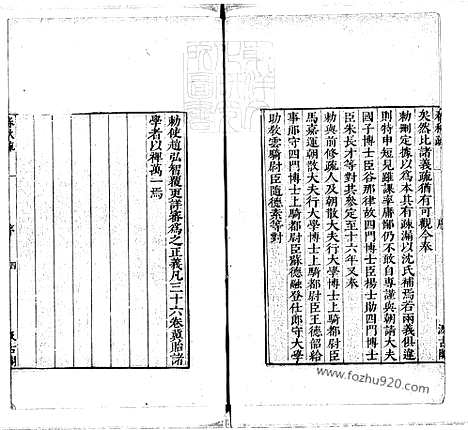 春秋疏
序
汲古閣
矣然比諸義疏猶有可觀今奉
勅刪定據以爲本其有疎漏以沈氏補焉若兩義俱違
則特申短見雖課率庸鄙仍不敢自專謹與朝請大夫
國子博士臣谷那律故四門博士臣楊士勛四門博士
臣朱長才等對共參定至十六年又奉
勅與前修疏人及朝散大夫行大學博士上騎都尉臣
馬嘉運朝散大夫行大學博士上騎都尉臣王德韶給
事郎守四門博士上騎都尉臣蘇德融登仕郎守大學
助敎雲騎尉臣隨德素等對
勅使趙弘智覆更詳審爲之正義凡三十六卷冀貽諸
學者以裨萬一焉
春秋疏
序
四
汲古閣
www.fozhu920.com